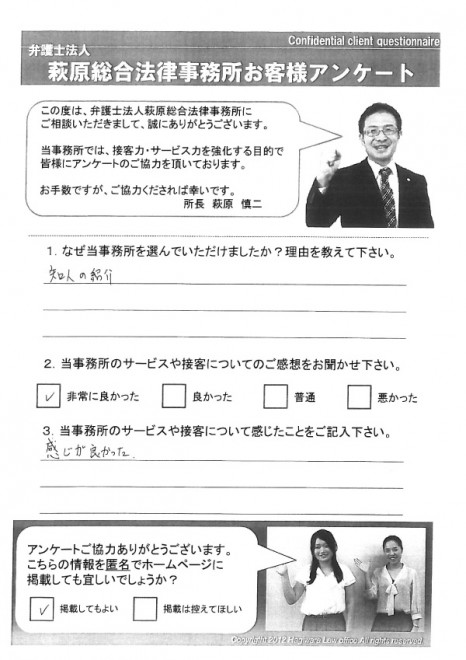 Confidential client questionnaire
弁護士法人
萩原総合法律事務所お客様アンケート
この度は、弁護士法人萩原総合法律事務所に
ご相談いただきまして、誠にありがとうございます。
当事務所では、接客力・サービス力を強化する目的で
皆様にアンケートのご協力を頂いております。
お手数ですが、ご協力くだされば幸いです。
所長 萩原 慎二
1. なぜ当事務所を選んでいただけましたか?理由を教えて下さい。
知人の紹介
2. 当事務所のサービスや接客についてのご感想をお聞かせ下さい。
✓ 非常に良かった 良かった 普通 悪かった
3. 当事務所のサービスや接客について感じたことをご記入下さい。
感じが良かった.
アンケートご協力ありがとうございます。
こちらの情報を匿名でホームページに
掲載しても宜しいでしょうか?
✓ 掲載してもよい 掲載は控えてほしい
Copyright 2012 Hagiwara Law office All rights reserved